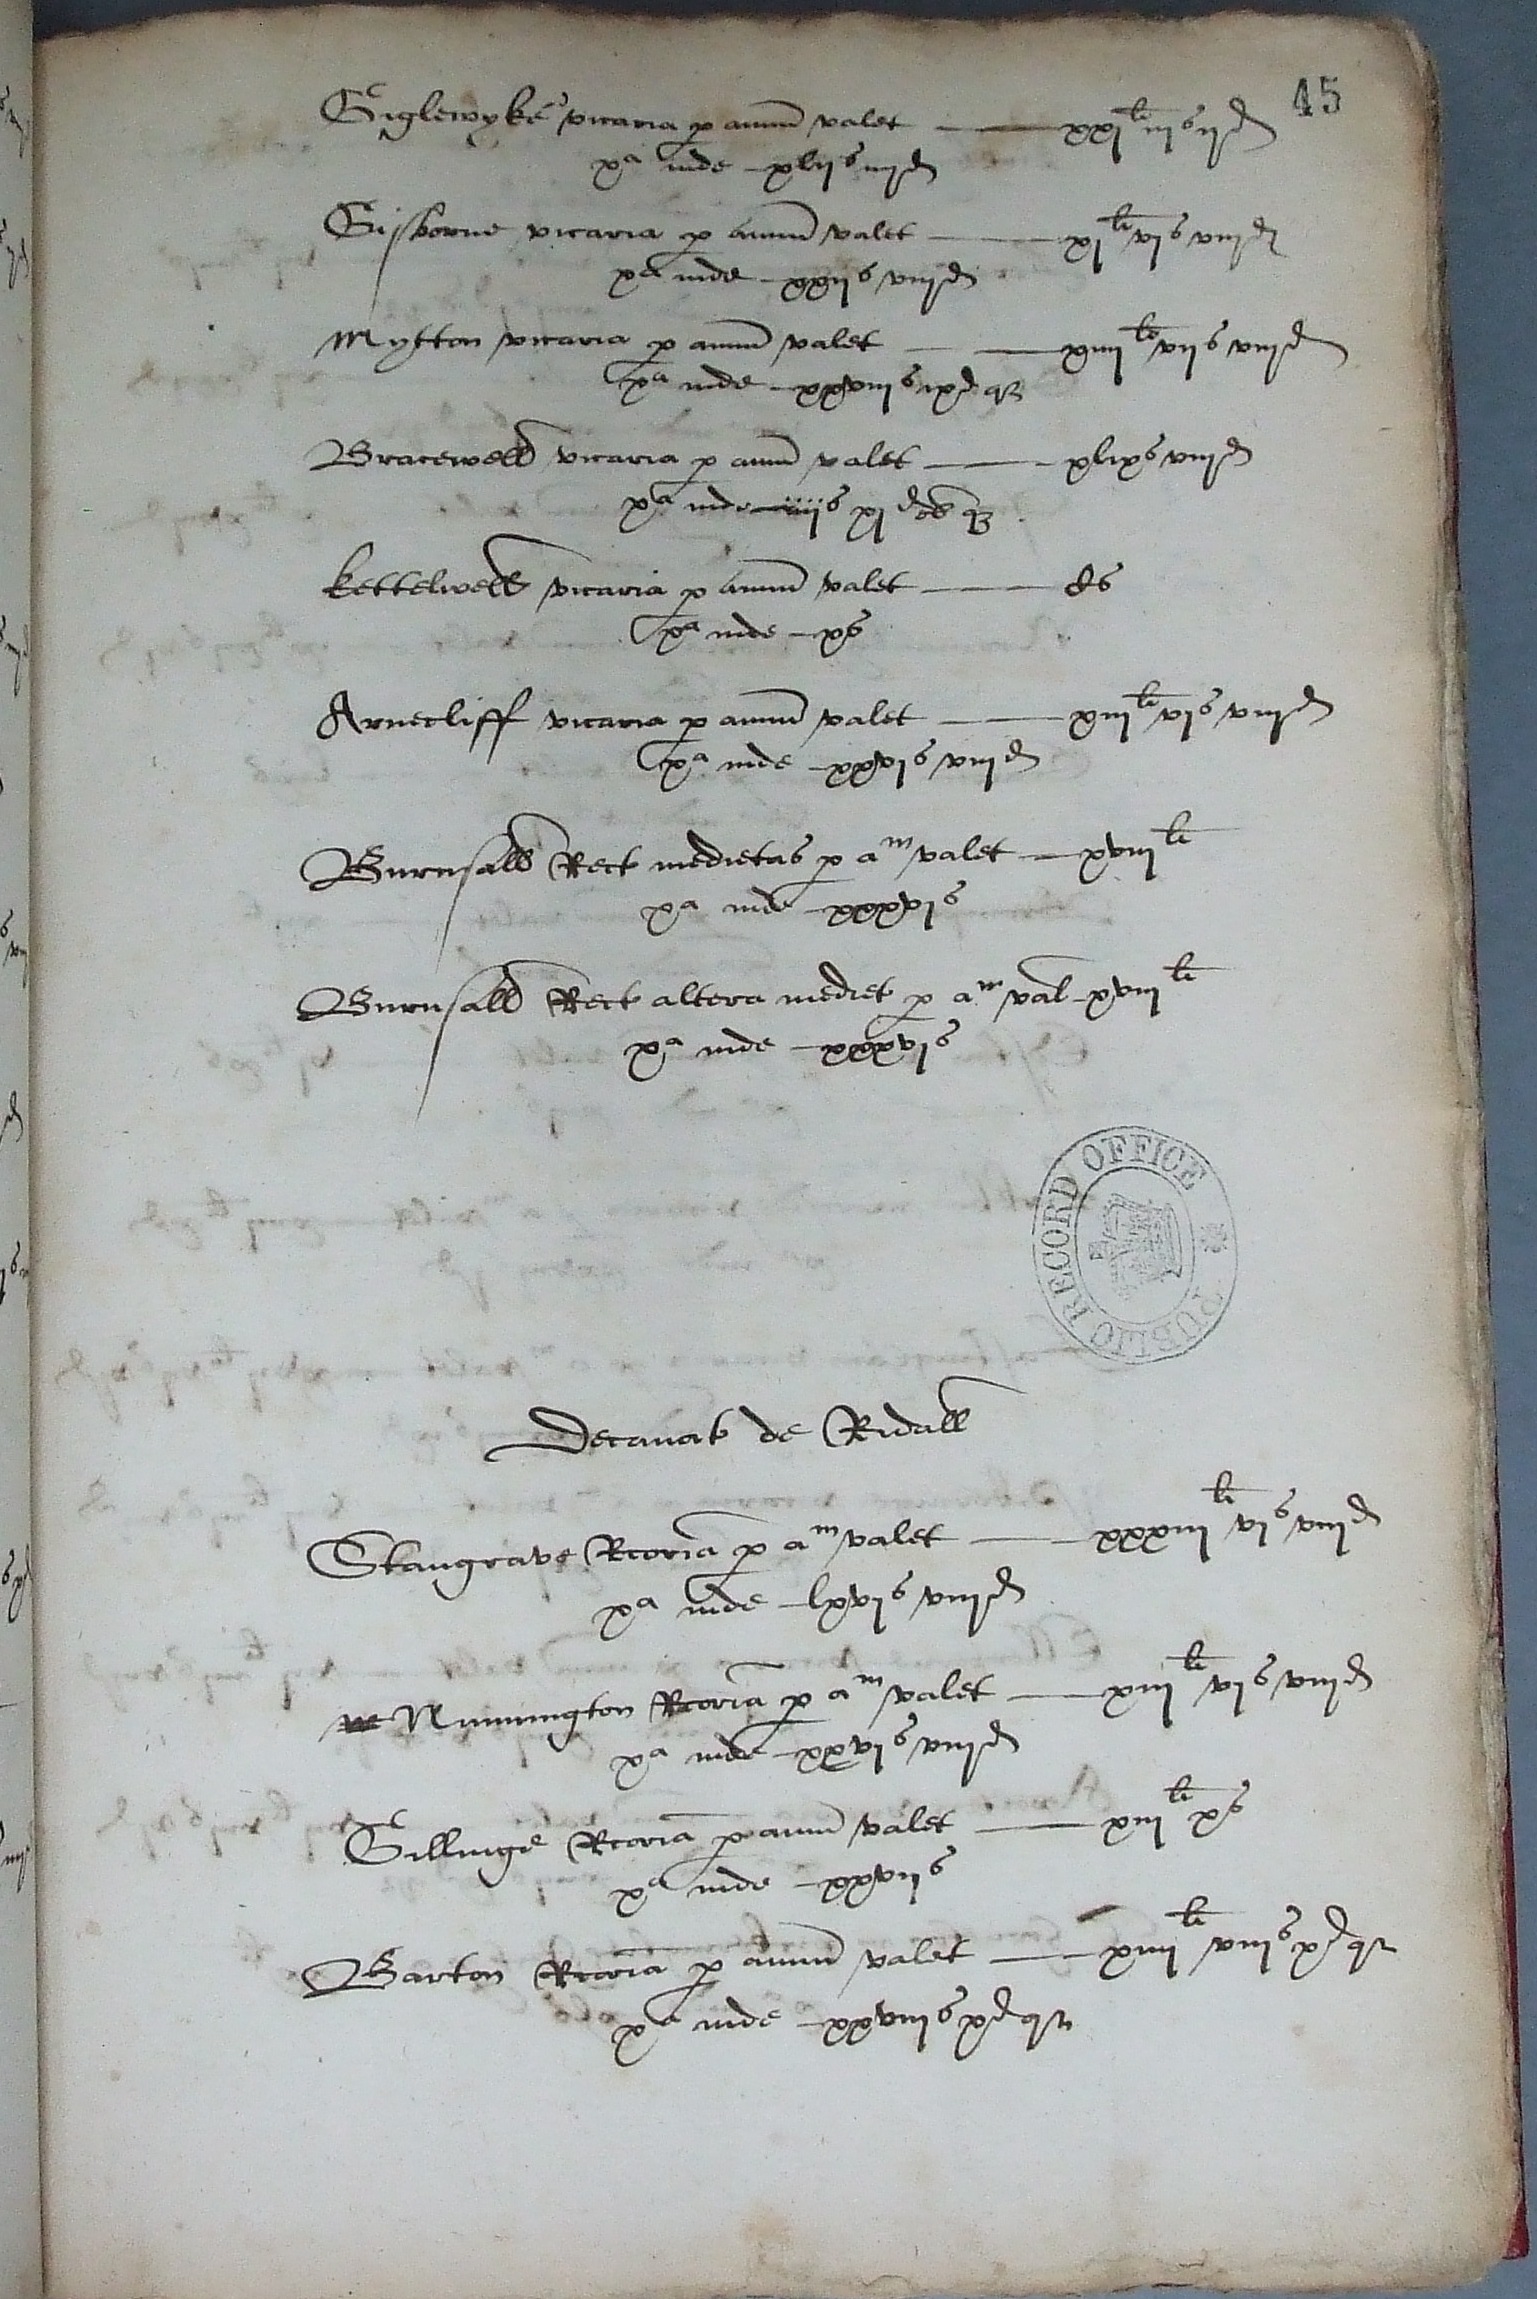 45
Giglewyke vicaria p annu valet — xxj li iij s ij d
xa inde — xlij s iiij d
Gisborne vicaria p annu valet — xj li vj s viij d
xa inde — xxij s viij d
Mytton vicaria p annu valet — xiiij li vij s viij d
xa inde — xxviij s ix d qr
Bracewell vicaria p annu valet — xlix s viij d
xa inde — iiij s xj d ob q
kettelwell vicaria p annu valet — c s
xa inde — x s
Arnecliff vicaria p annu valet — xiij li vj s viij d
xa inde — xxvj s viij d
Burnsall Rect medietas p am valet — xviij li
xa inde — xxxvj s
Burnsall Rect altera mediet p am val — xviij li
xa inde — xxxvj s
PUBLIC RECORD OFFICE
Decanat de Ridall
Stangrave Rcoria p am valet — xxxiij li vj s viij d
xa inde — lxvj s viij d
Nunnington Rcoria p am valet — xiij li vj s viij d
xa inde — xxvj s viij d
Gillinge Rcoria p annu valet — xiij li x s
xa inde — xxvij s
Barton Rcoria p annu valet — xiiij li viij s x d qr
xa inde — xxviij s x d qr